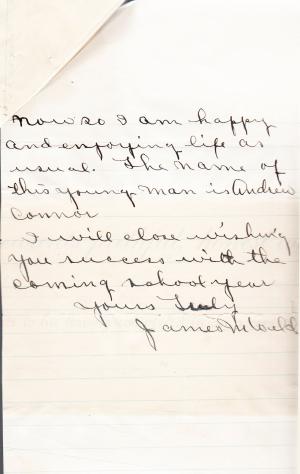 now so I am happy
and enjoying life as
usual. The name of
this young man is Andrew
Connor
I will close wishing
you success with the
coming school year
Yours Truly
James M